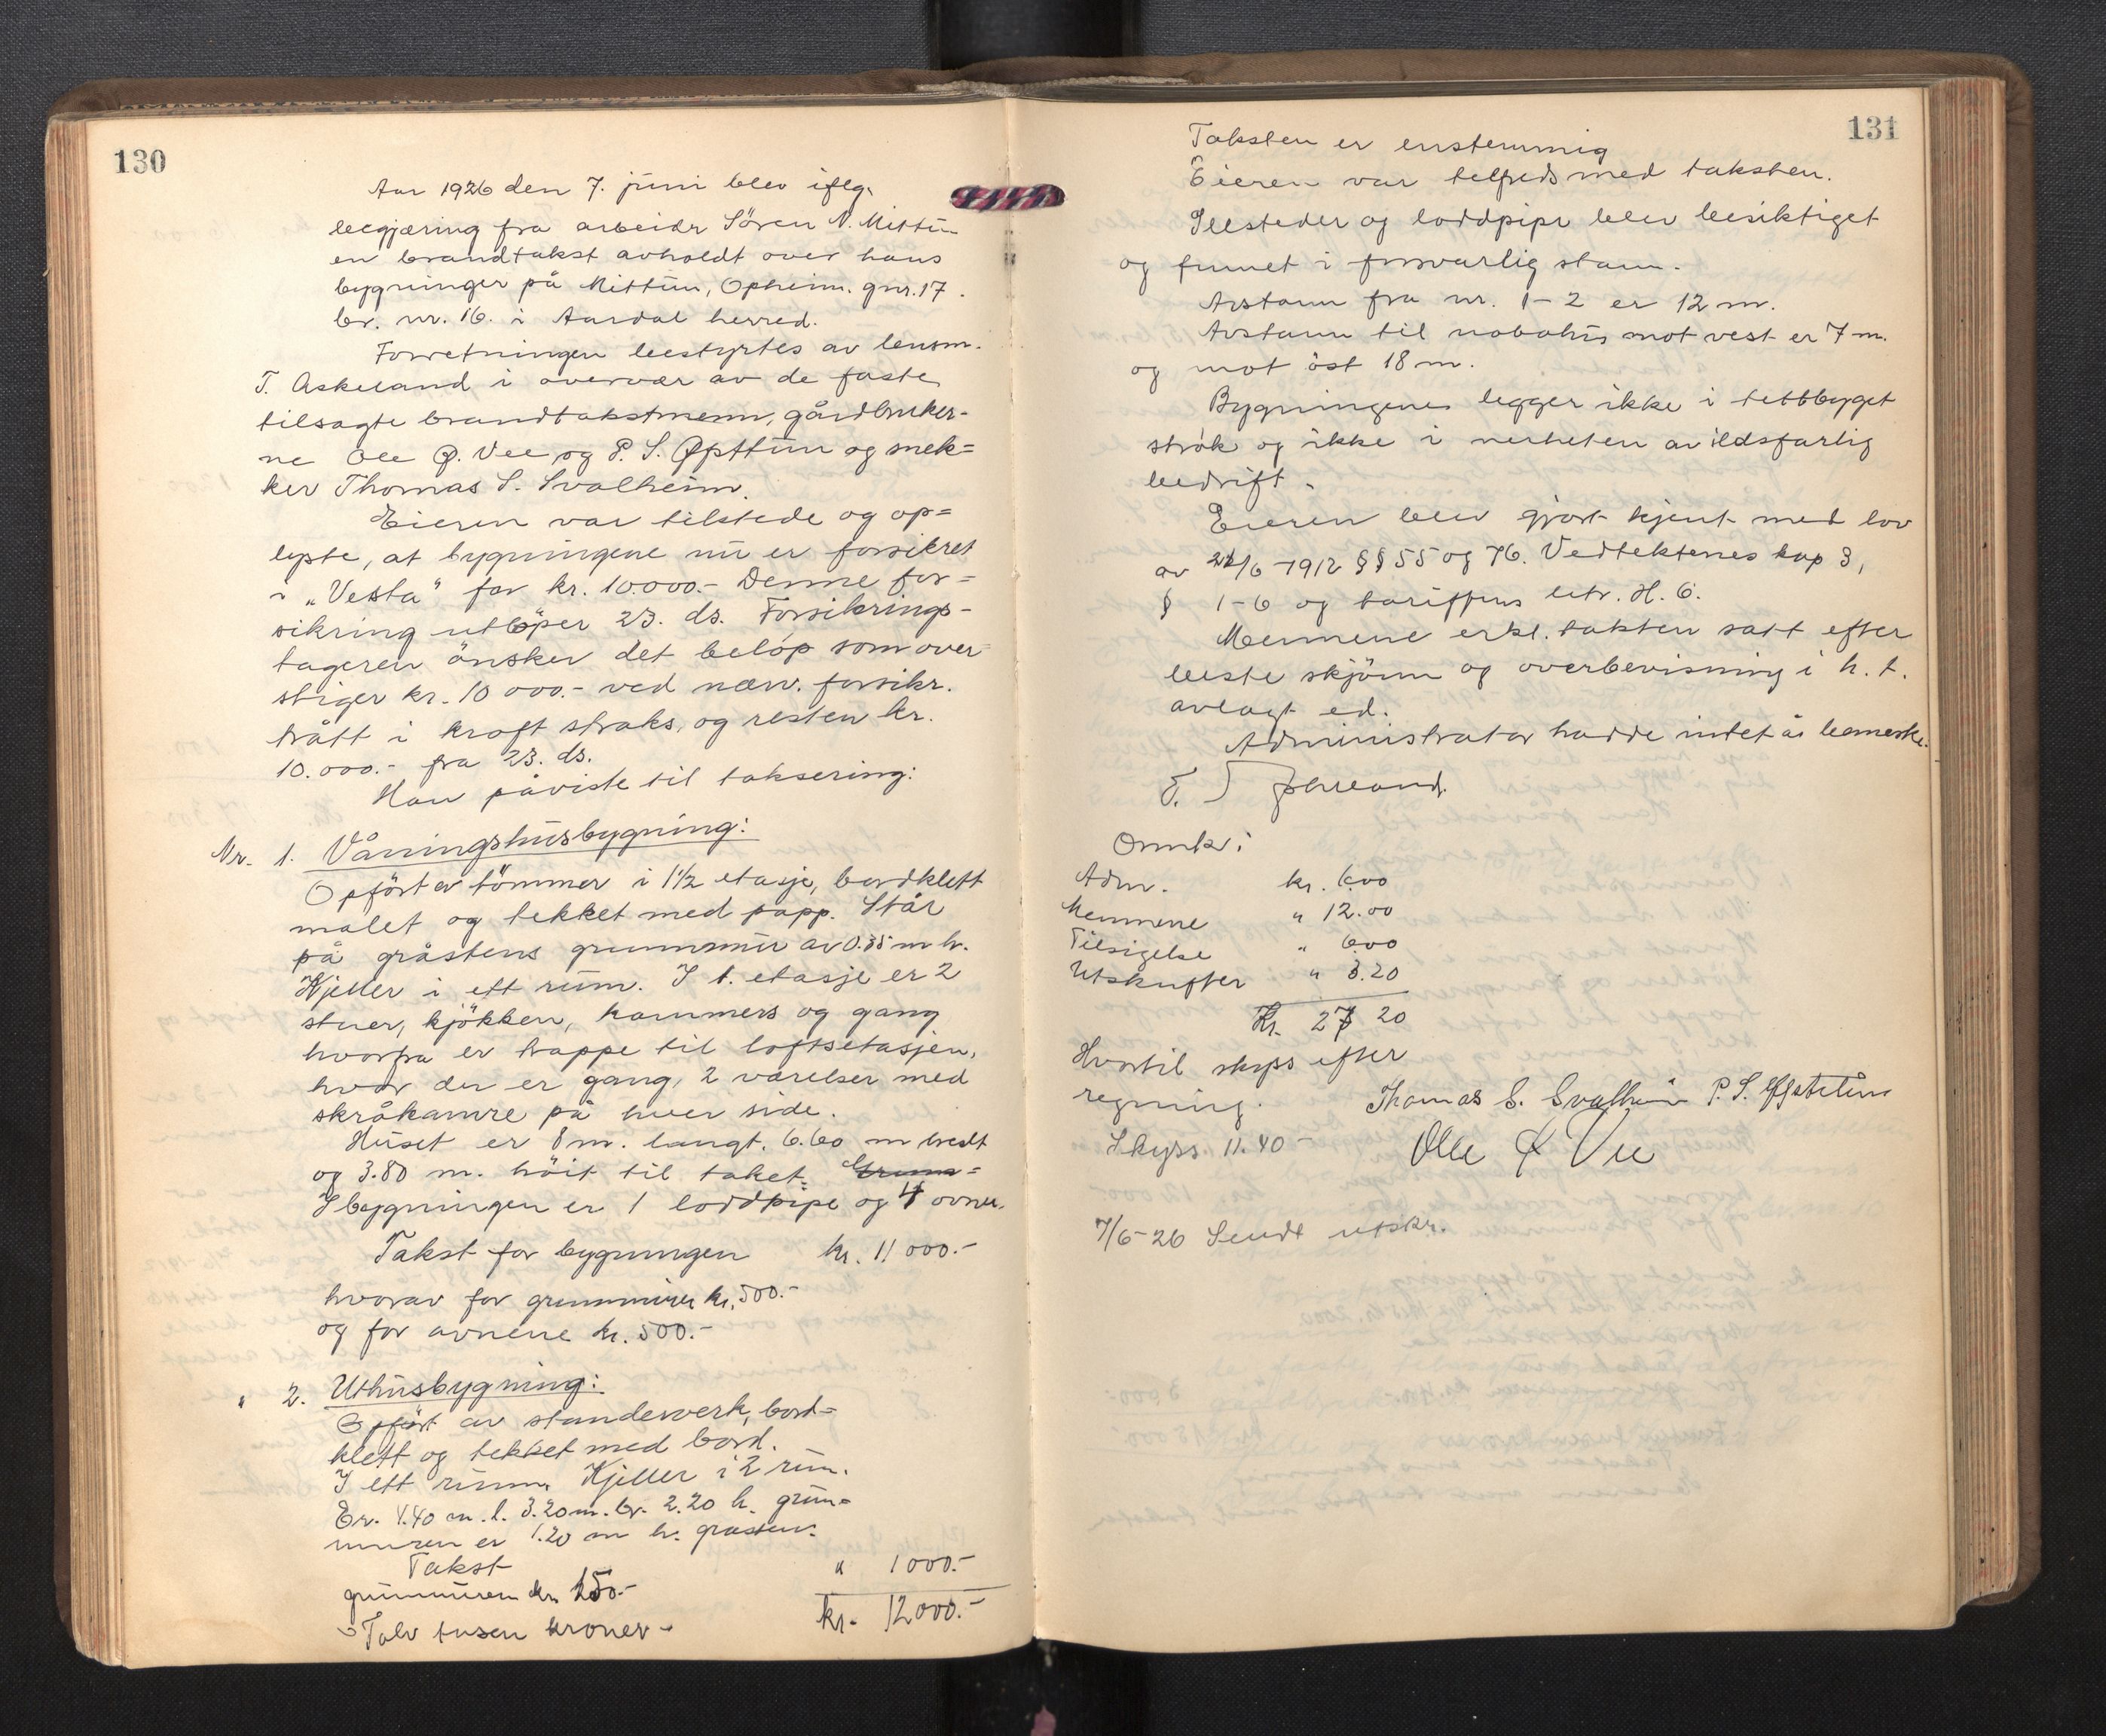 130
Aar 1926 den 7. juni blev iflg.
begjæring fra arbeidr Sören N. Mittun
en brandtakst avholdt over hans
bygninger på Mittun, Opheim. gnr. 17.
br. nr. 16. i Aardal herred.
Forretningen bestyrtes av lensm.
T. Askeland i overvær av de faste
tilsagte brandtakstmenn, gårdbruker-
ne Ole Ø. Vee og P. S. Øpsttun og snek=
ker Thomas S. Svalheim.
Eieren var tilstede og op=
lyste, at bygningene nu er forsikret
i „Vesta" for kr. 10.000.- Denne for=
sikring utlöper 23. ds. Forsikrings-
tageren önsker det belöp som over
stiger kr. 10 000.- ved nærv. forsikr.
trått i kraft straks, og resten kr.
10.000.- fra 23. ds.
Han påviste til taksering:
Nr. 1. Våningshusbygning:
Opfört av tömmer i 1½ etasje, bordklett
malet og tekket med papp. Står
på gråstens grunnmur av 0.35 m h.
Kjeller i ett rum. I 1. etasje er 2
stuer, kjökken, kammers og gang
hvorfra er trappe til loftsetasjen,
hvor der er gang, 2 værelser med
skråkamre på hver side.
Huset er 8 m. langt. 6.60 m bredt
og 3.80 m. höit til taket. Grunn=
I bygningen er 1 loddpipe og 4 ovner.
Takst for bygningen kr. 11 000.-
hvorav for grunnmuren kr. 500.-
og for ovnene kr. 500.-
" 2. Uthusbygning:
Opfört av standerverk, bord=
klett og tekket med bord.
I ett rumm. Kjeller i 2 rum.
Er. 4.40 m. l. 3.20 m. br. 2.20 h. grun=
muren er 1.20 m h. grasten.
Takst " 1000.-
grunnmuren kr. 150.-
kr. 12000.-
- Tolv tusen kroner -
131
Taksten er enstemmig
Eieren var tilfreds med taksten.
Illsteder og loddpipe blev besiktiget
og funnet i forsvarlig stann.
Avstann fra nr. 1-2 er 12 m.
Avstann til nabohus mot vest er 7 m.
og mot öst 18 m.
Bygningene legger ikke i tettbyget
strök og ikke i nerheten av ildsfarlig
bedrift.
Eieren blev gjort kjent med lov
av 21/6-1912 §§ 55 og 76. Vedtektenes kap 3,
§ 1-6 og tariffens litr. H. 6.
Mennene erkl. taksten satt efter
beste skjönn og overbevisning i h. t.
avlagt ed.
Administrator hadde intet å bemerke.
T. Askeland.
Omk:
Adm. kr. 6.00
Mennene " 12.00
Tilsigelse " 6.00
Utskrifter " 3.20
Kr. 27 20
Hvortil skyss efter
regning.
Skyss. 11.40 -
Thomas S. Svalheim P. S. Øpstetun
Olle Ø Vee
7/6-26 Sendt utskr.